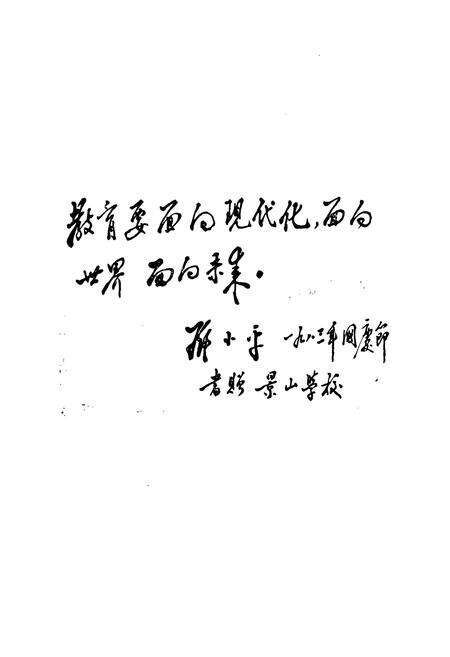 教育要面向现代化,面向
世界 面向未来。
邓小平 一九八三年國慶節
書贈 景山学校